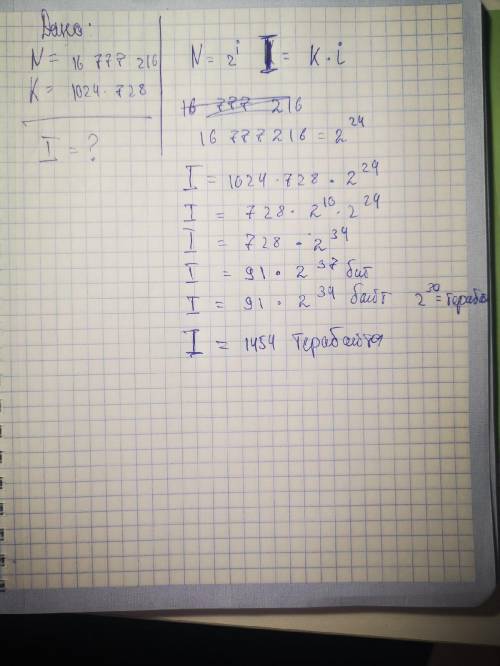 Дано:
N = 16 777 216
K = 1024 · 728
I = ?
N = 2^i I = K · i
16 777 216
16 777 216 = 2^24
I = 1024 · 728 · 2^24
I = 728 · 2^10 · 2^24
I = 728 · 2^34
I = 91 · 2^37 бит
I = 91 · 2^34 байт 2^30 = терабай
I = 1454 терабайта